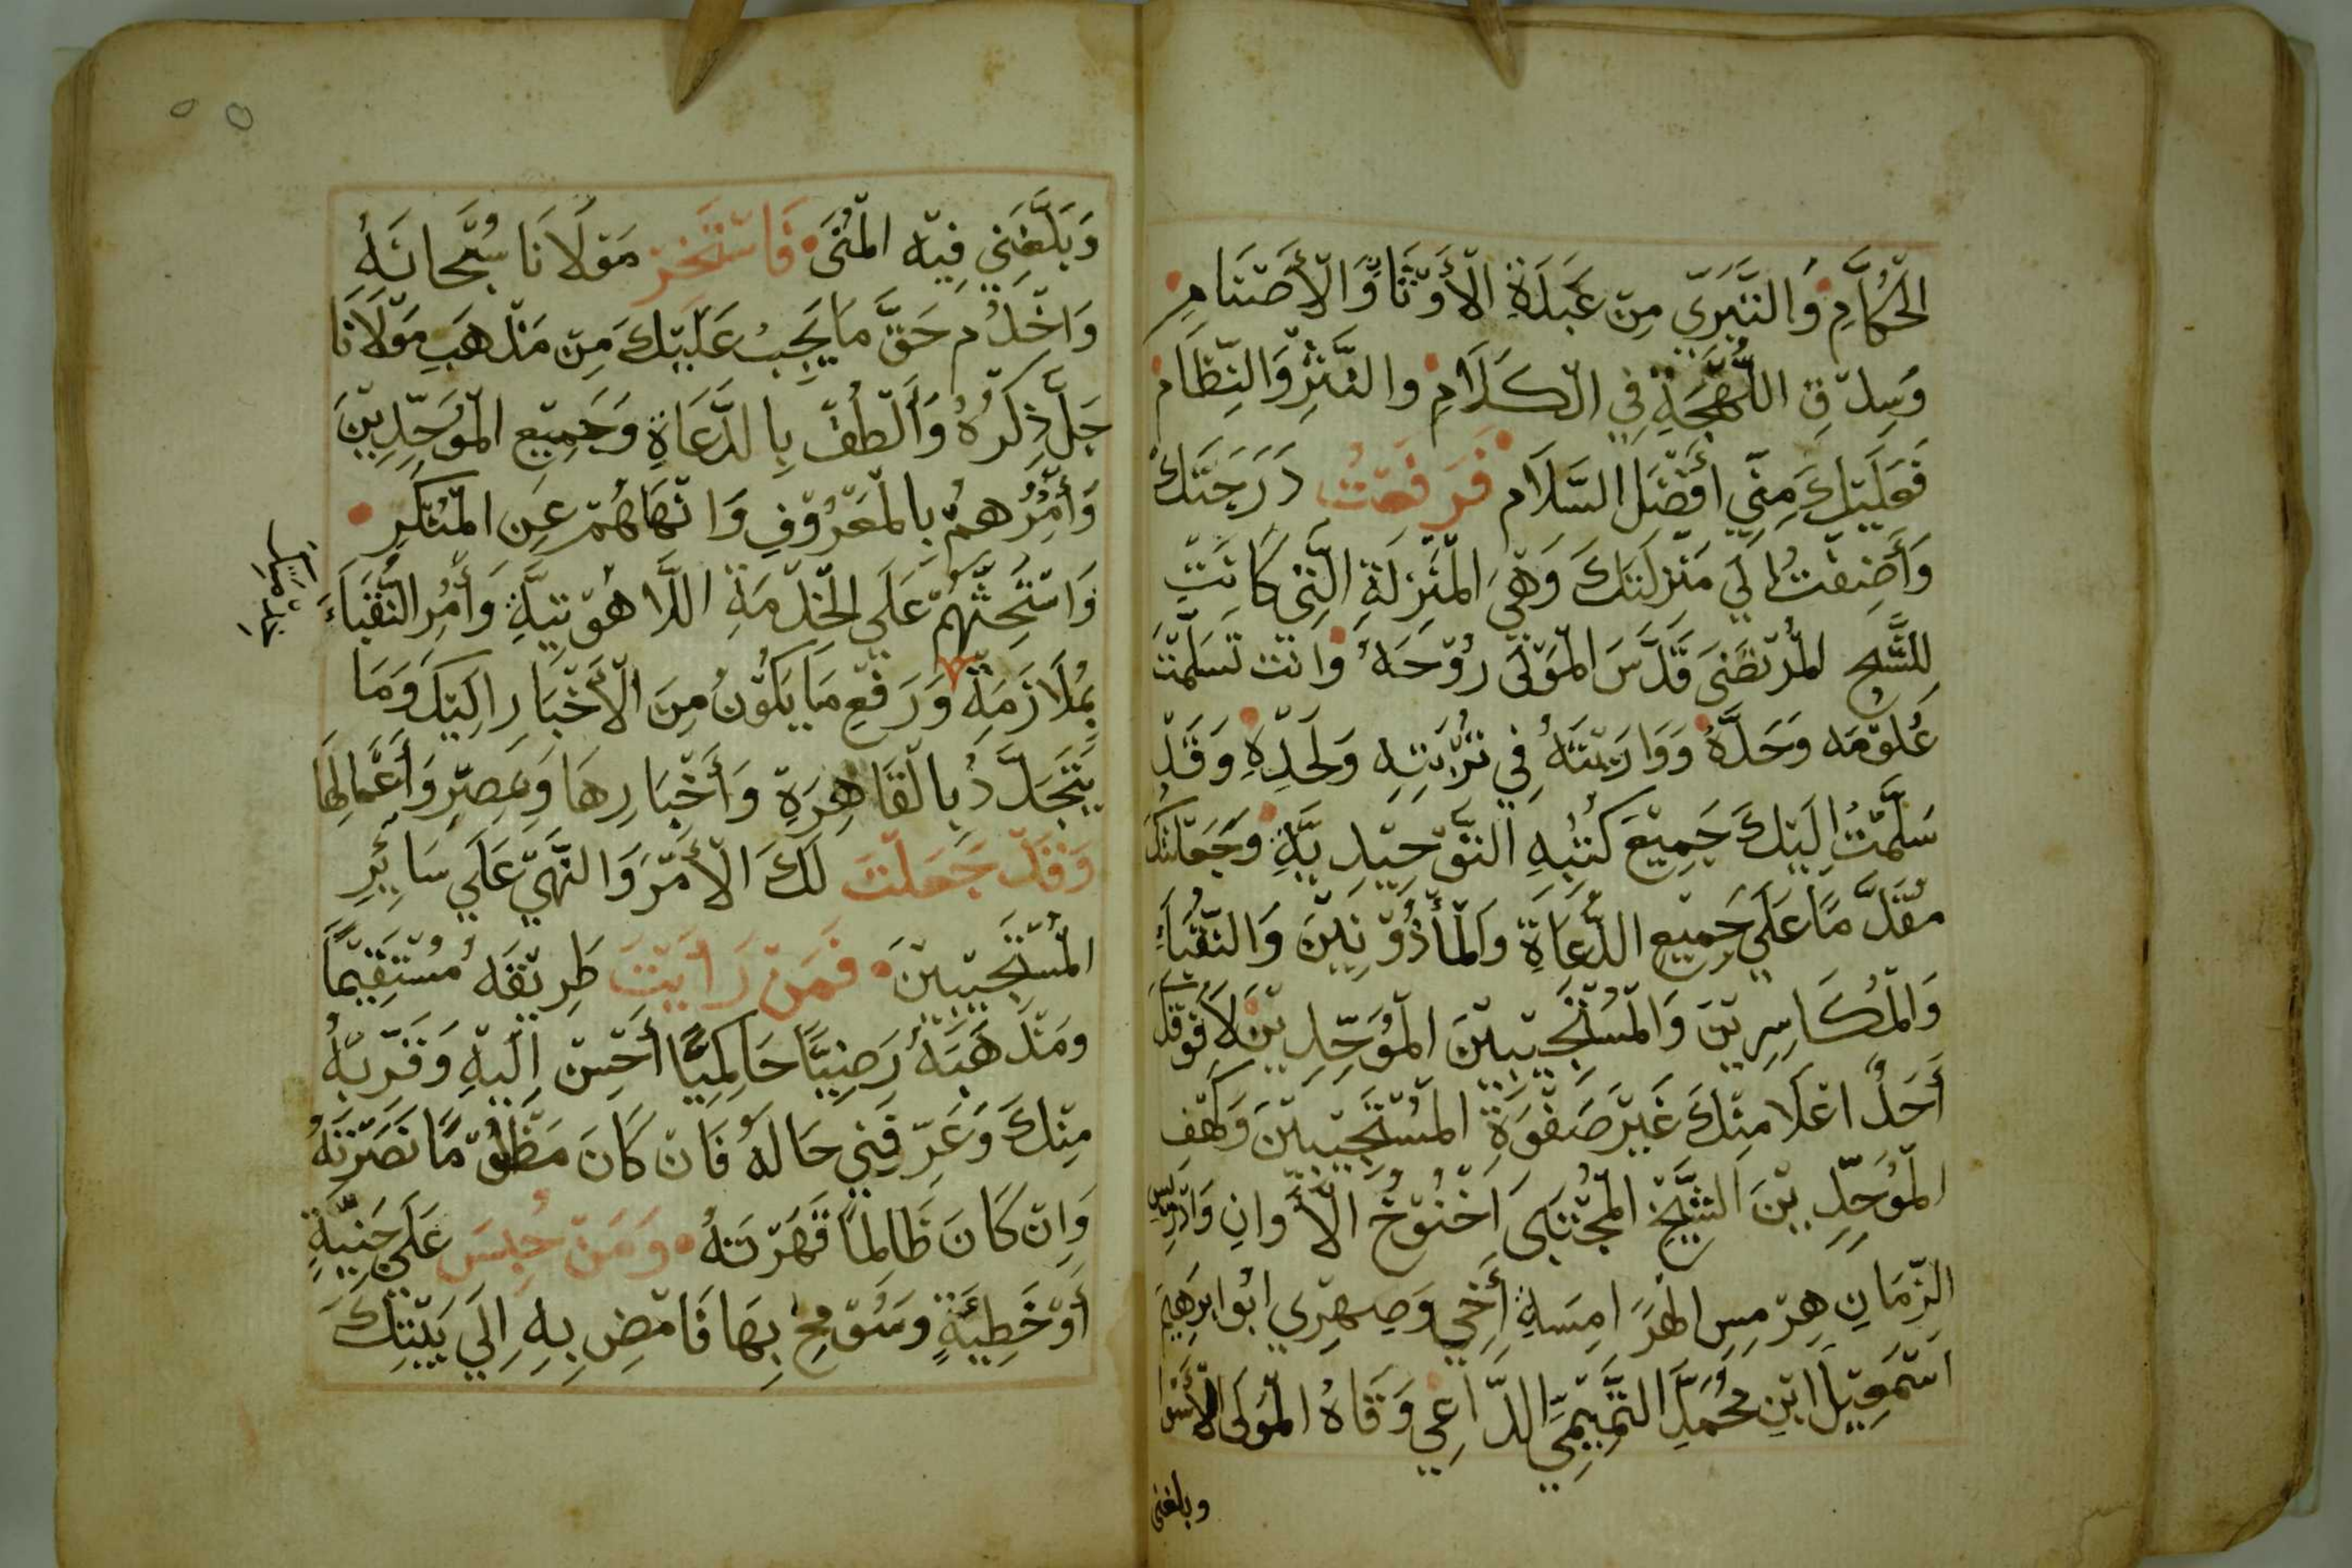 الحُكَّامِ وَالتَّبَرِّي مِن عَبَدَةِ الْأَوْثَا وَالْأَصْنَامِ
وَسِدْقِ اللَّهْجَةِ فِي الْكَلَامِ والنَّثْرِ وَالنِّظَامِ
فَعَلَيْكَ مِنِّي أَفْضَلَ السَّلَام فَرَفَعْتُ دَرَجَتَكَ
وَأَضِفْتُ إلَي مَنْزِلَتَكَ وَهِيَ الْمَنْزِلَةِ الَّتِى كَانَتْ
لِلشَّيْخِ الْمُرْتَضَى قَدَّسَ الْمَوْلَى رُوْحَهُ وَانْت تَسَلَّمْتَ
عُلُوْمَه وَحَدَّهُ وَوَارَيْتَهُ فِي تُرْبَتِهِ وَلَحْدِهِ وَقَدْ
سَلَّمْتُ إلَيْكَ جَمِيْعَ كُتُبِهِ التَّوْحِيْدِيَّةِ وَجَعَلْتُكَ
مُقَدَّمًا عَلَي جَمِيْعِ الدُّعَاةِ وَالْمَأْذُوْنِيْنَ وَالنُّقَبَاءِ
وَالْمُكَاسِرِيْنَ وَالْمُسْتَجِيْبِيْنَ الْمُوَحِّدِيْنَ لَا فَوْقَكَ
أَحَدٌ اعْلَا مِنْكَ غَيْرَ صَفْوَةِ الْمُسْتَجِيْبِيْنَ وَكَهْف
الْمُوَحِّدِيْنَ الشَّيْخْ الْمُجْتَبَى اَخْنُوْخُ الْأَوانِ وَادْرِيْس
الزَّمَانِ هِرْمِسِ الْهَرَامِسَةِ أَخِي وَصِهْرِي ابُو ابْرَهِيْمَ
اسْمَعِيْلَ ابْنِ مُحَمَّدِ التَّمِيْمِيِّ الدَّاعِي وَقَاهُ الْمَوْلَى الْأَسْوَا
وبلغني
وَبَلَّغَنِي فِيْهِ الْمُنَى فَاسْتَخِرْ مَوْلَانَا سُبْحَانَهُ
وَاخْدُم حَقَّ مَا يَجِبُ عَلَيْكَ مِنْ مَذْهَبِ مَوْلَانَا
جَلَّ ذِكْرُهُ وَالْطُفْ بِالدُّعَاةِ وَجَمِيْعِ الْمُوَحِّدِيْنَ
وَأْمُرْهُمْ بِالْمَعْرُوْفِ وَانْهَاهُمْ عَنِ الْمُنْكَرِ
وَاسْتَحِثَّهُمْ عَلَي الْخِدْمَةِ اللَّاهُوْتِيَّةِ وَأْمُرِ النُّقَبَاءَ
بِمُلَازَمَةِ وَرَفْعِ مَا يَكُوْنُ مِنَ الْأَخْبَارِ إلَيْكَ وَمَا
يَتَجَدَّدُ بِالْقَاهِرَةِ وَأَخْبَارِهَا وَمِصْرِ وَأَعْمَالِهَا
وَقَدْ جَعَلْتُ لَكَ الْأَمْرَ وَالنَّهْيَ عَلَي سَائِرِ
الْمُسْتَجِيْبِيْنَ فَمَنْ رَأَيْتَ طَرِيْقَهُ مُسْتَقِيْمًا
ومَذْهَبَهُ رَضِيًّا حَاكِمِيًّا أَحْسِنْ إلَيْهِ وَقَرِّبْهُ
مِنْكَ وَعَرِّفْنِي حَالَهُ فَانْ كَانَ مَظْلُوْمًا نَصَرْتَهُ
وَانْ كَانَ ظَالِمًا قَهَرْتَهُ وَمَنْ حُبِسَ عَلَي جَنِيَّةٍ
أَوْ خَطِيْئَةٍ وَسُوْمِحَ بِهَا فَامْضِ بِهِ إلَي بَيْتِكَ